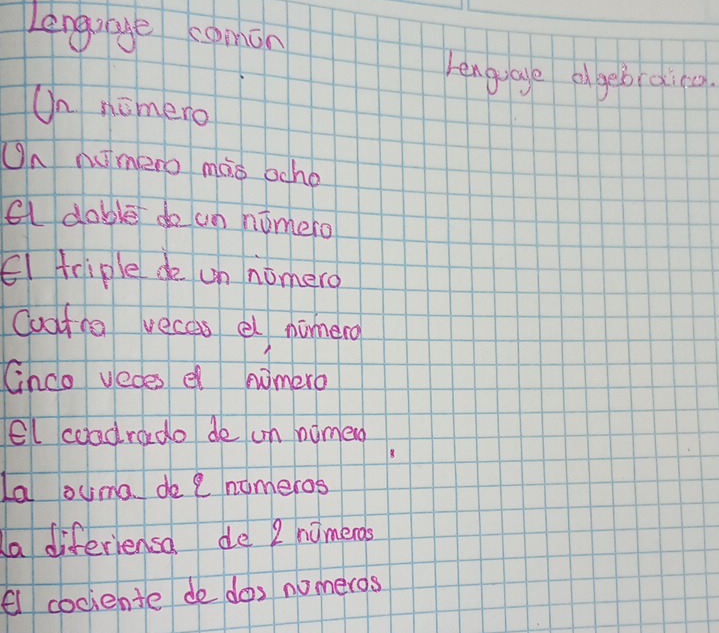 Lenguaje común
Lenguaje algebraico.
Un número
Un número más ocho
El doble de un número
El triple de un número
Cuatro veces el número
Cinco veces el número
El cuadrado de un número
La suma de 2 números
La diferiensa de 2 números
El cociente de dos números